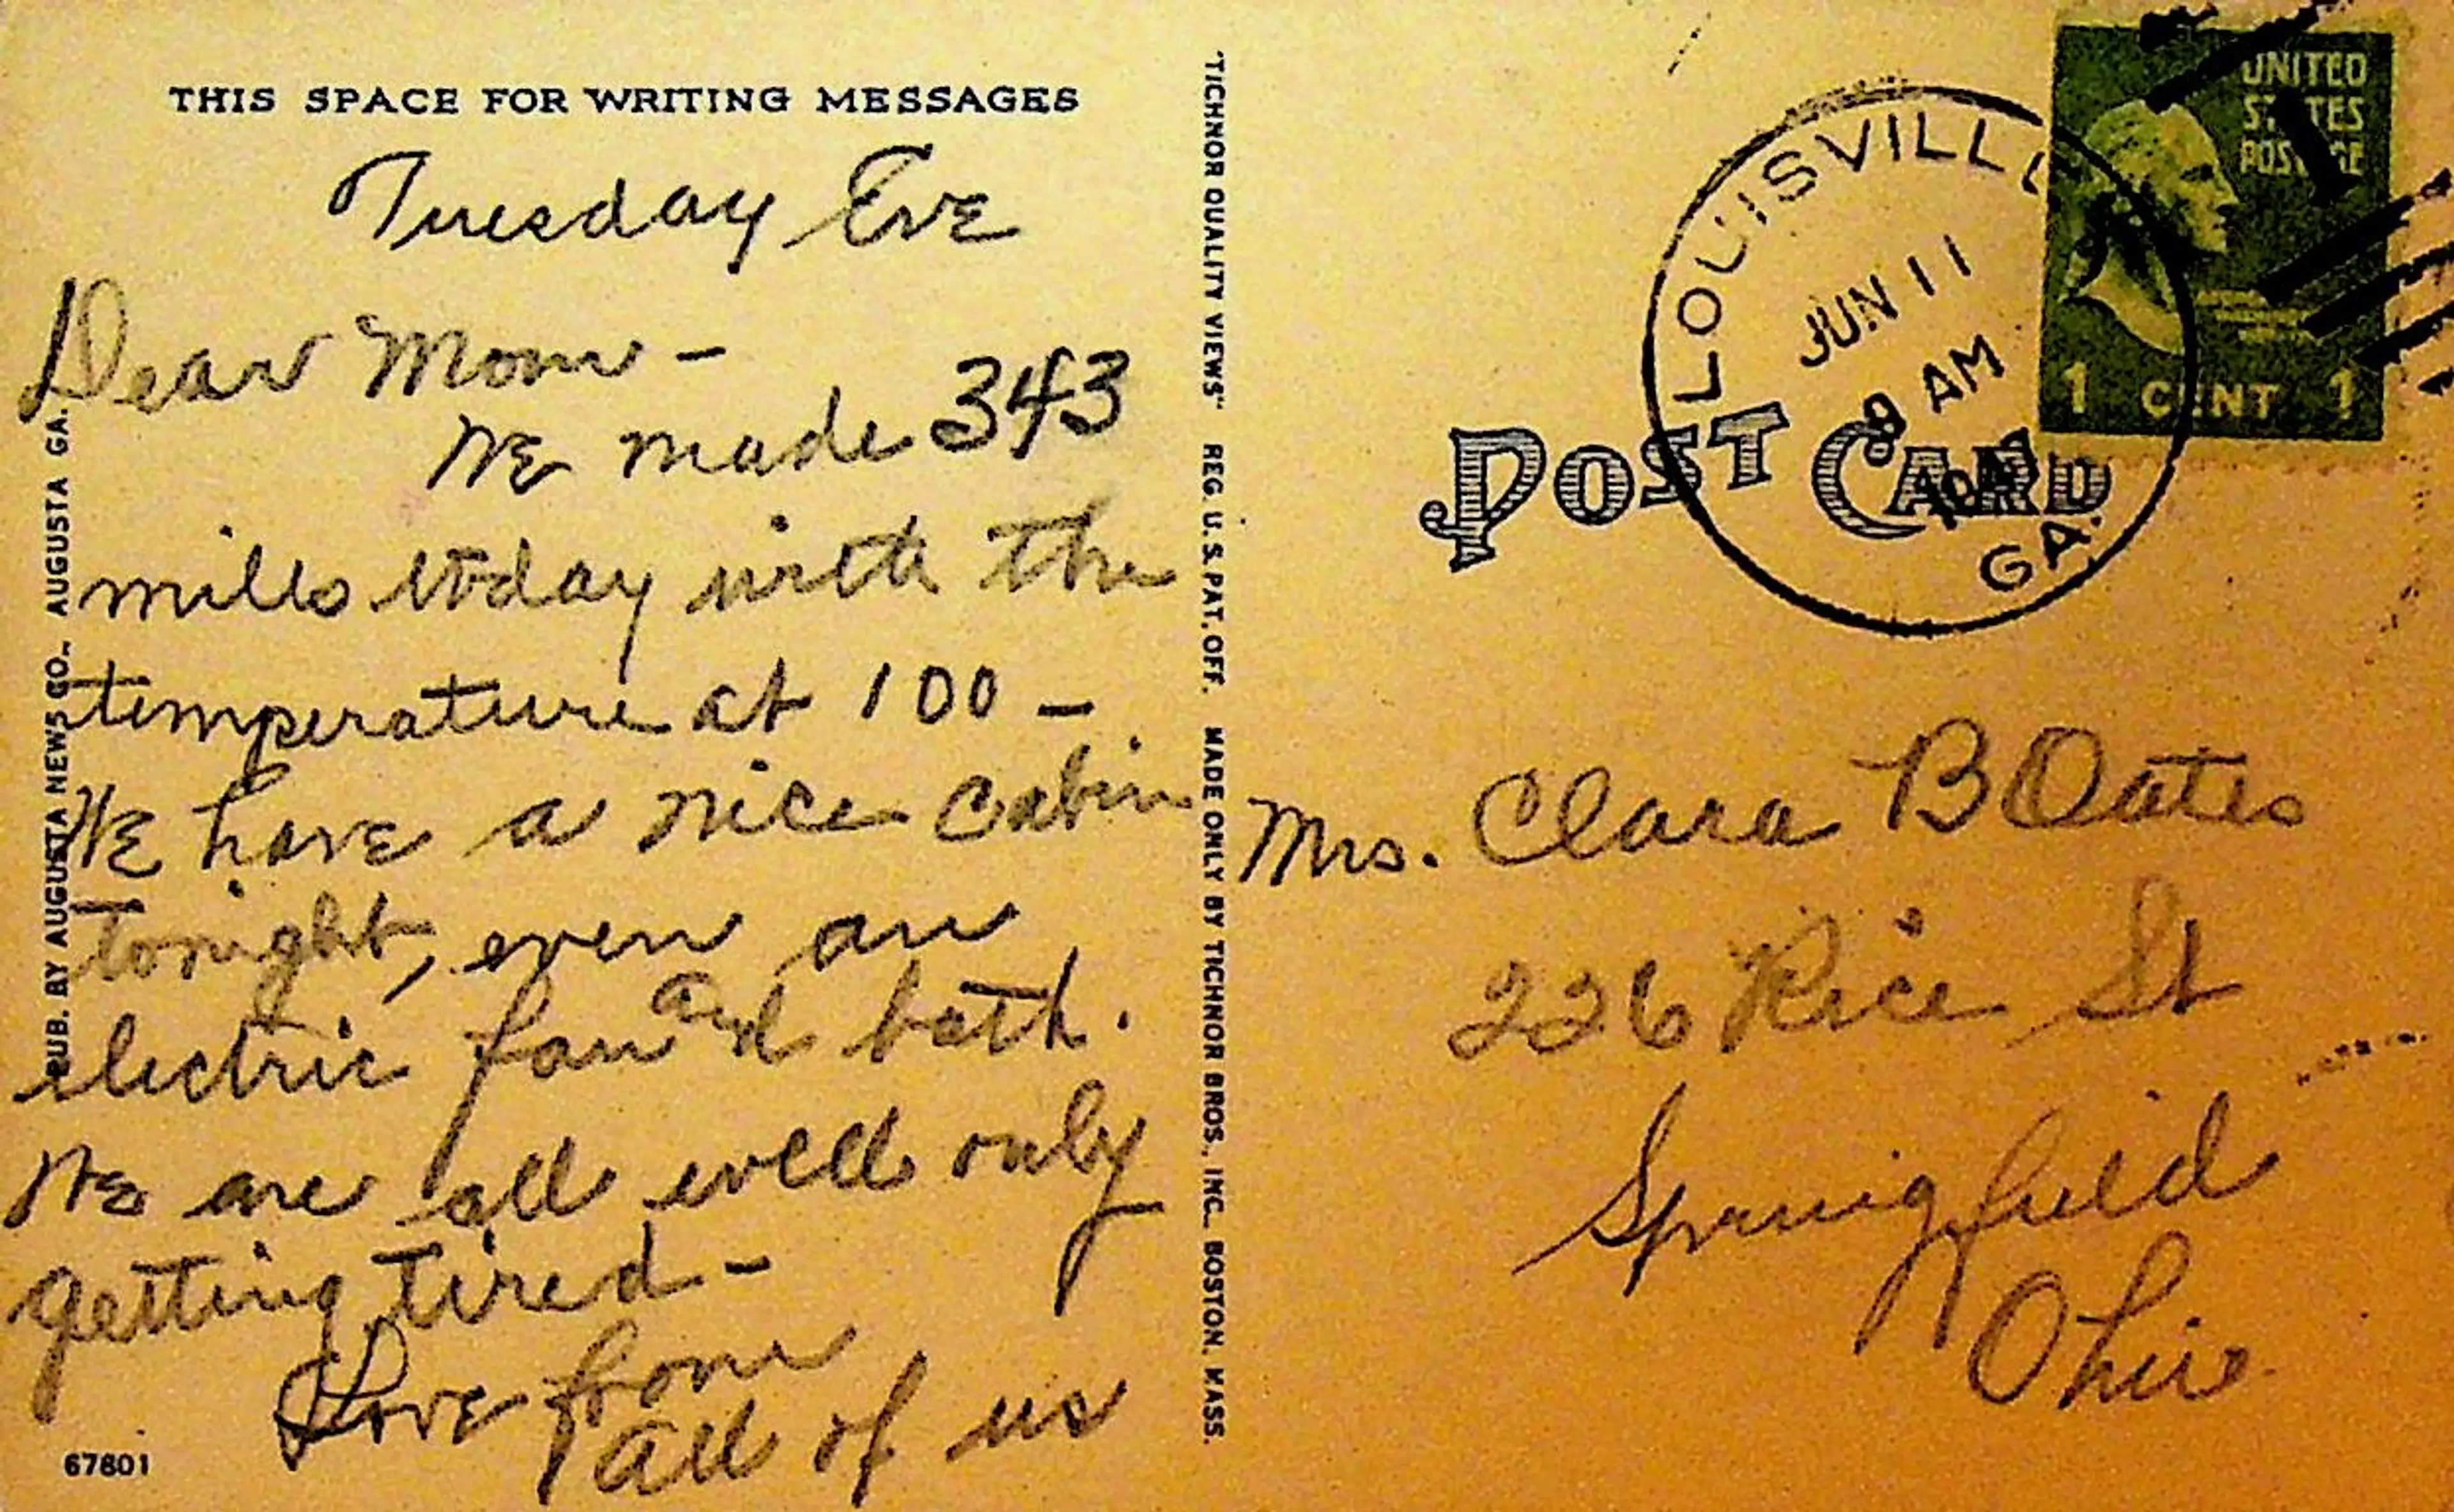 THIS SPACE FOR WRITING MESSAGES
Tuesday Eve
Dear Mom -
We made 343
mills today with the
temperature at 100 -
We have a nice cabin
tonight, even an
electric fan and bath.
We are all well only
getting tired -
Love from
all of us
67801
PUB. BY AUGUSTA NEWS CO., AUGUSTA GA.
"TICHNOR QUALITY VIEWS" REG. U. S. PAT. OFF. MADE ONLY BY TICHNOR BROS., INC., BOSTON, MASS.
UNITED
STATES
POSTAGE
1 CENT 1
LOUISVILLE
JUN 11
8 AM
GA.
POST CARD
Mrs. Clara B Oates
226 Rice St
Springfield
Ohio